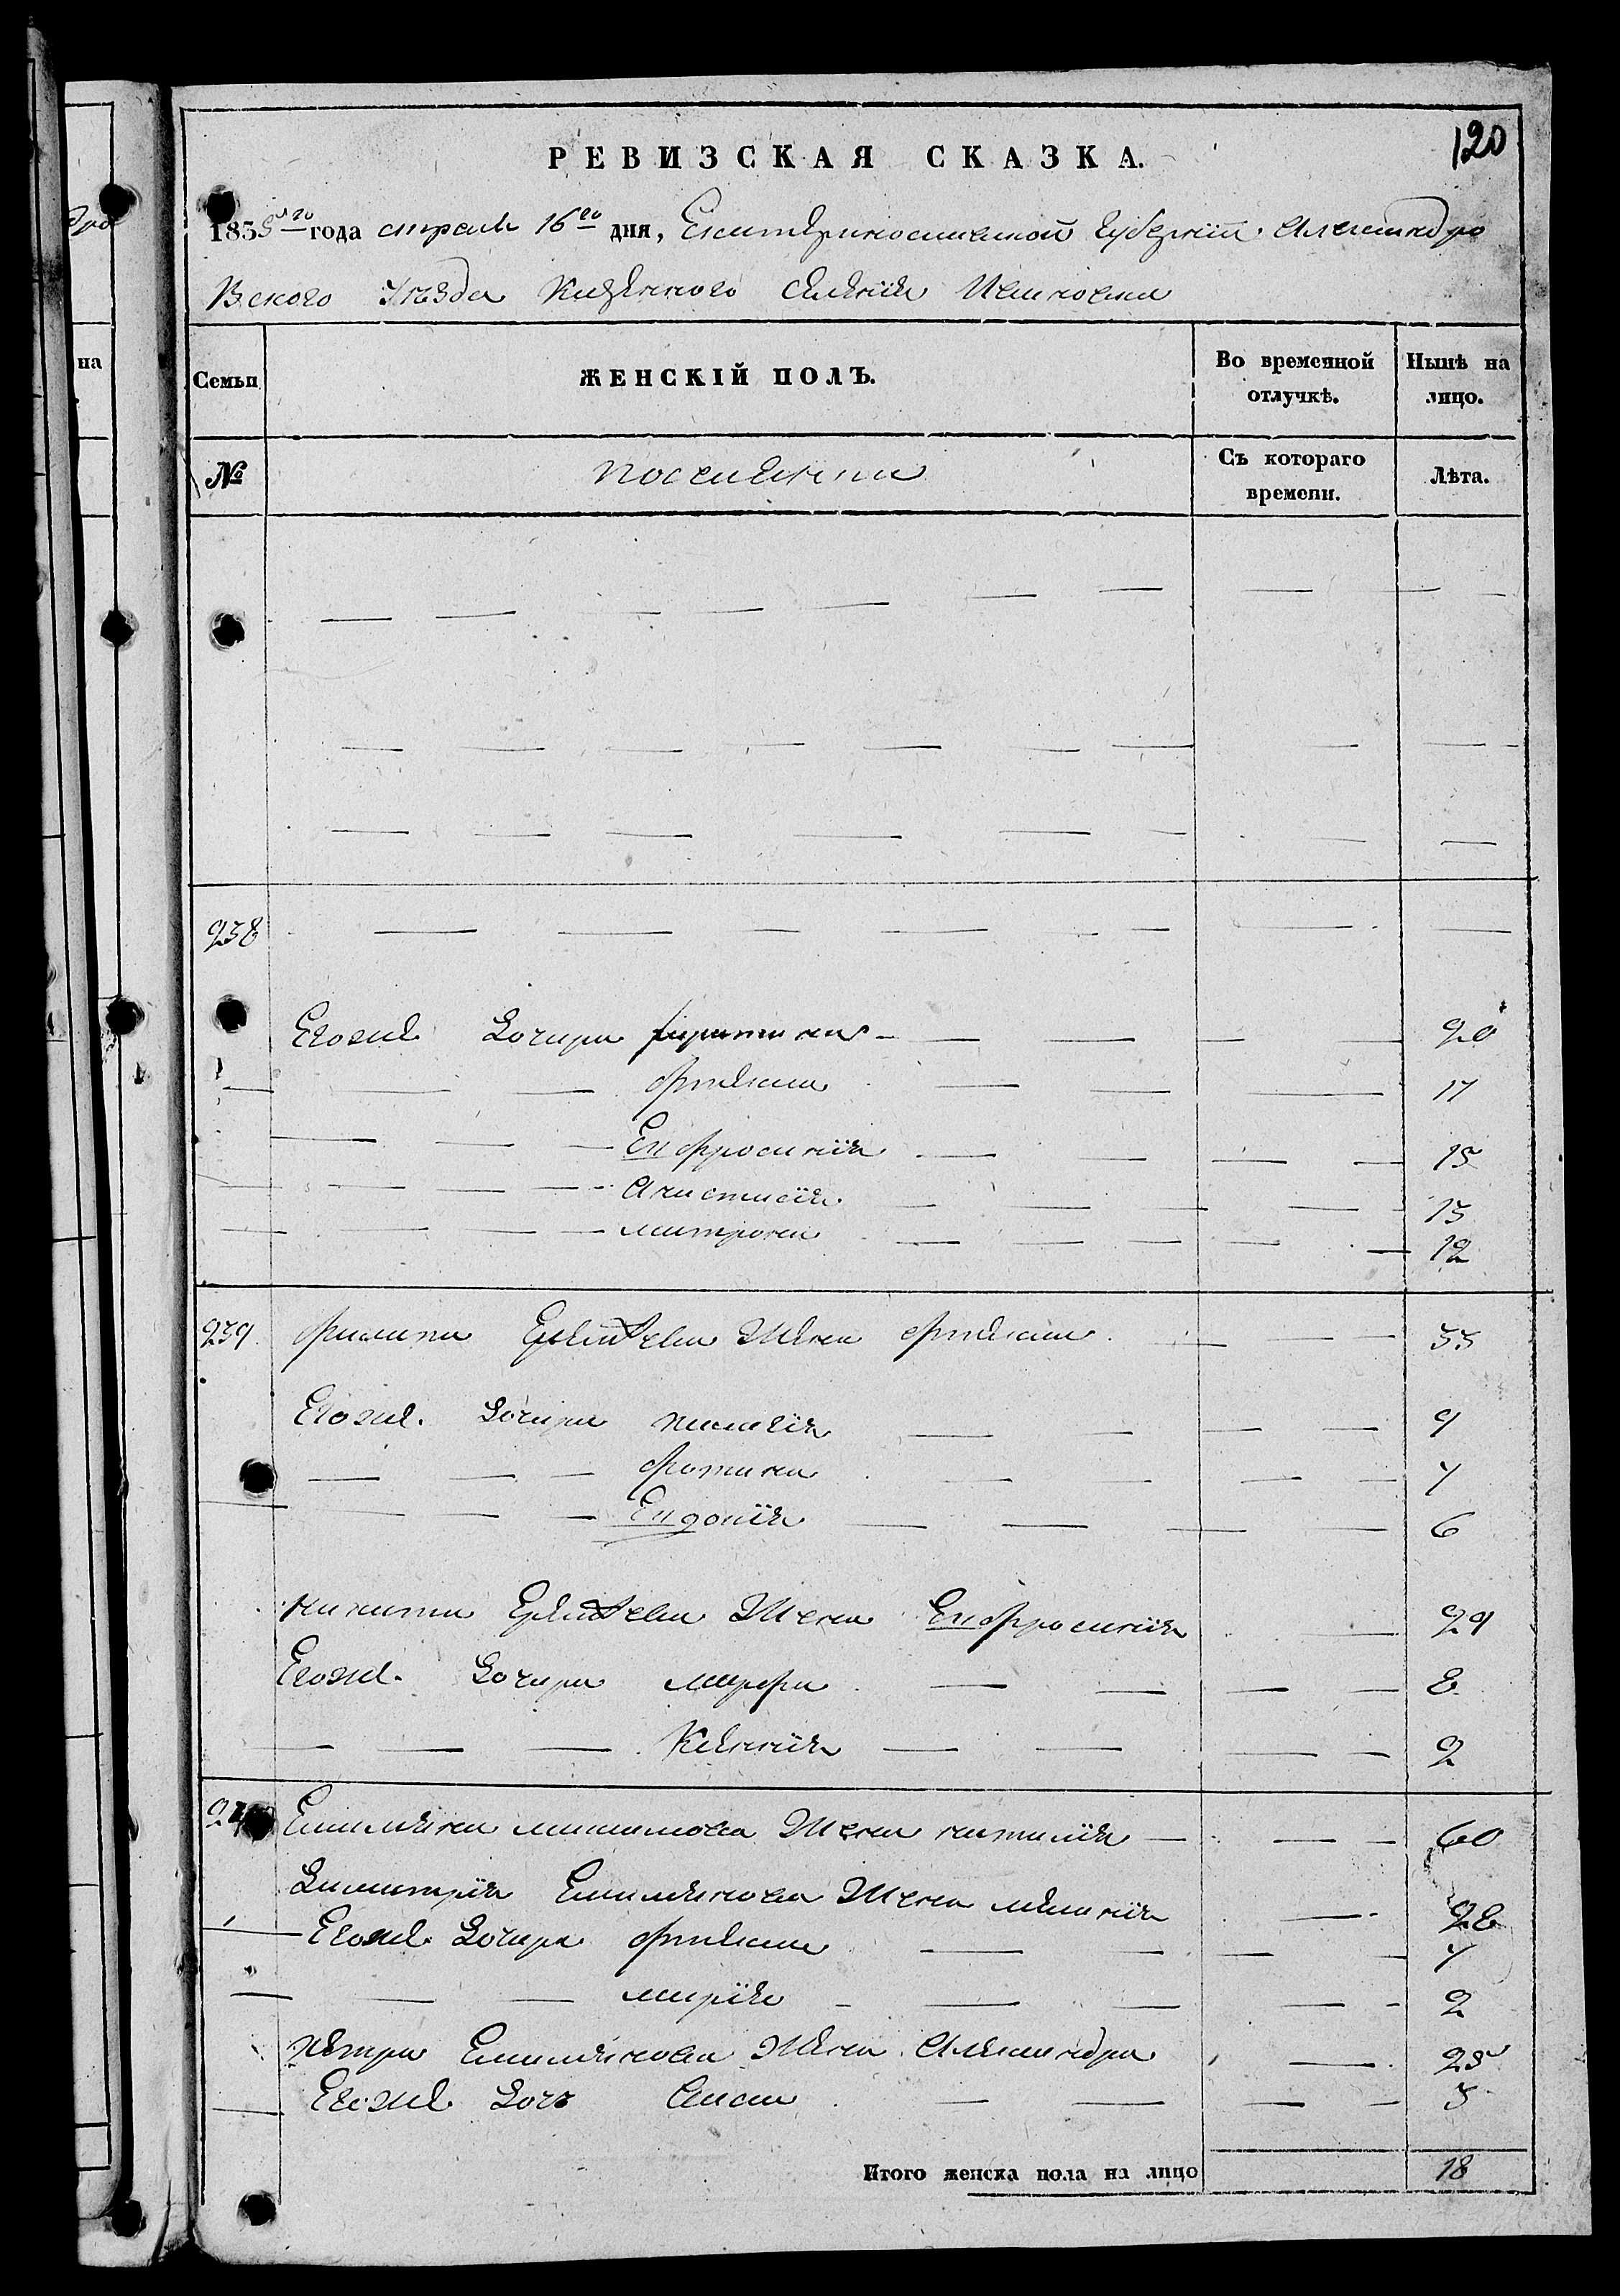 120
РЕВИЗСКАЯ СКАЗКА.
1835го года апреля 16го дня, Екатеринославской Губернии Александро
Вского Уезда Казенного селения Ивановка
на
Семьи
ЖЕНСКІЙ ПОЛЪ.
Во временной отлучкѣ.
Нынѣ на лицо.
№
поселяни
Съ котораго времени.
Лѣта.
238
Егоже Дочери 20
Фтекла 17
Евфросинія 15
Анастасія 13
матрона 12
239 филипа жена Фтекла 33
Егоже Дочери пелагія 9
Фотина 7
Евдокія 6
никиты жена Евфросинія 29
Егоже Дочери марфа 8
Ксенія 2
Емилияна максимова Жена наталія 60
Димитрія Емилиянова Жена меланія 28
Егоже Дочери Фтекла 7
марія 2
петра Емилиянова Жена Александра 25
Егоже Дочь Анна 3
Итого женска пола на лицо 18